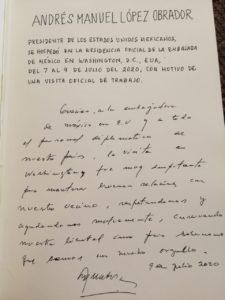 ANDRÉS MANUEL LÓPEZ OBRADOR,
PRESIDENTE DE LOS ESTADOS UNIDOS MEXICANOS,
SE HOSPEDÓ EN LA RESIDENCIA OFICIAL DE LA EMBAJADA
DE MÉXICO EN WASHINGTON, D.C., EUA,
DEL 7 AL 9 DE JULIO DEL 2020, CON MOTIVO DE
UNA VISITA OFICIAL DE TRABAJO.
Gracias a la embajadora
de méxico en E.U y a todo
el personal diplomático de
nuestro país, la visita en
Washington fue muy importante
para mantener buenas relaciones con
nuestro vecino, respetándonos y
ayudándonos mutuamente,
nuestra libertad como país soberano
que somos
9 de julio 2020